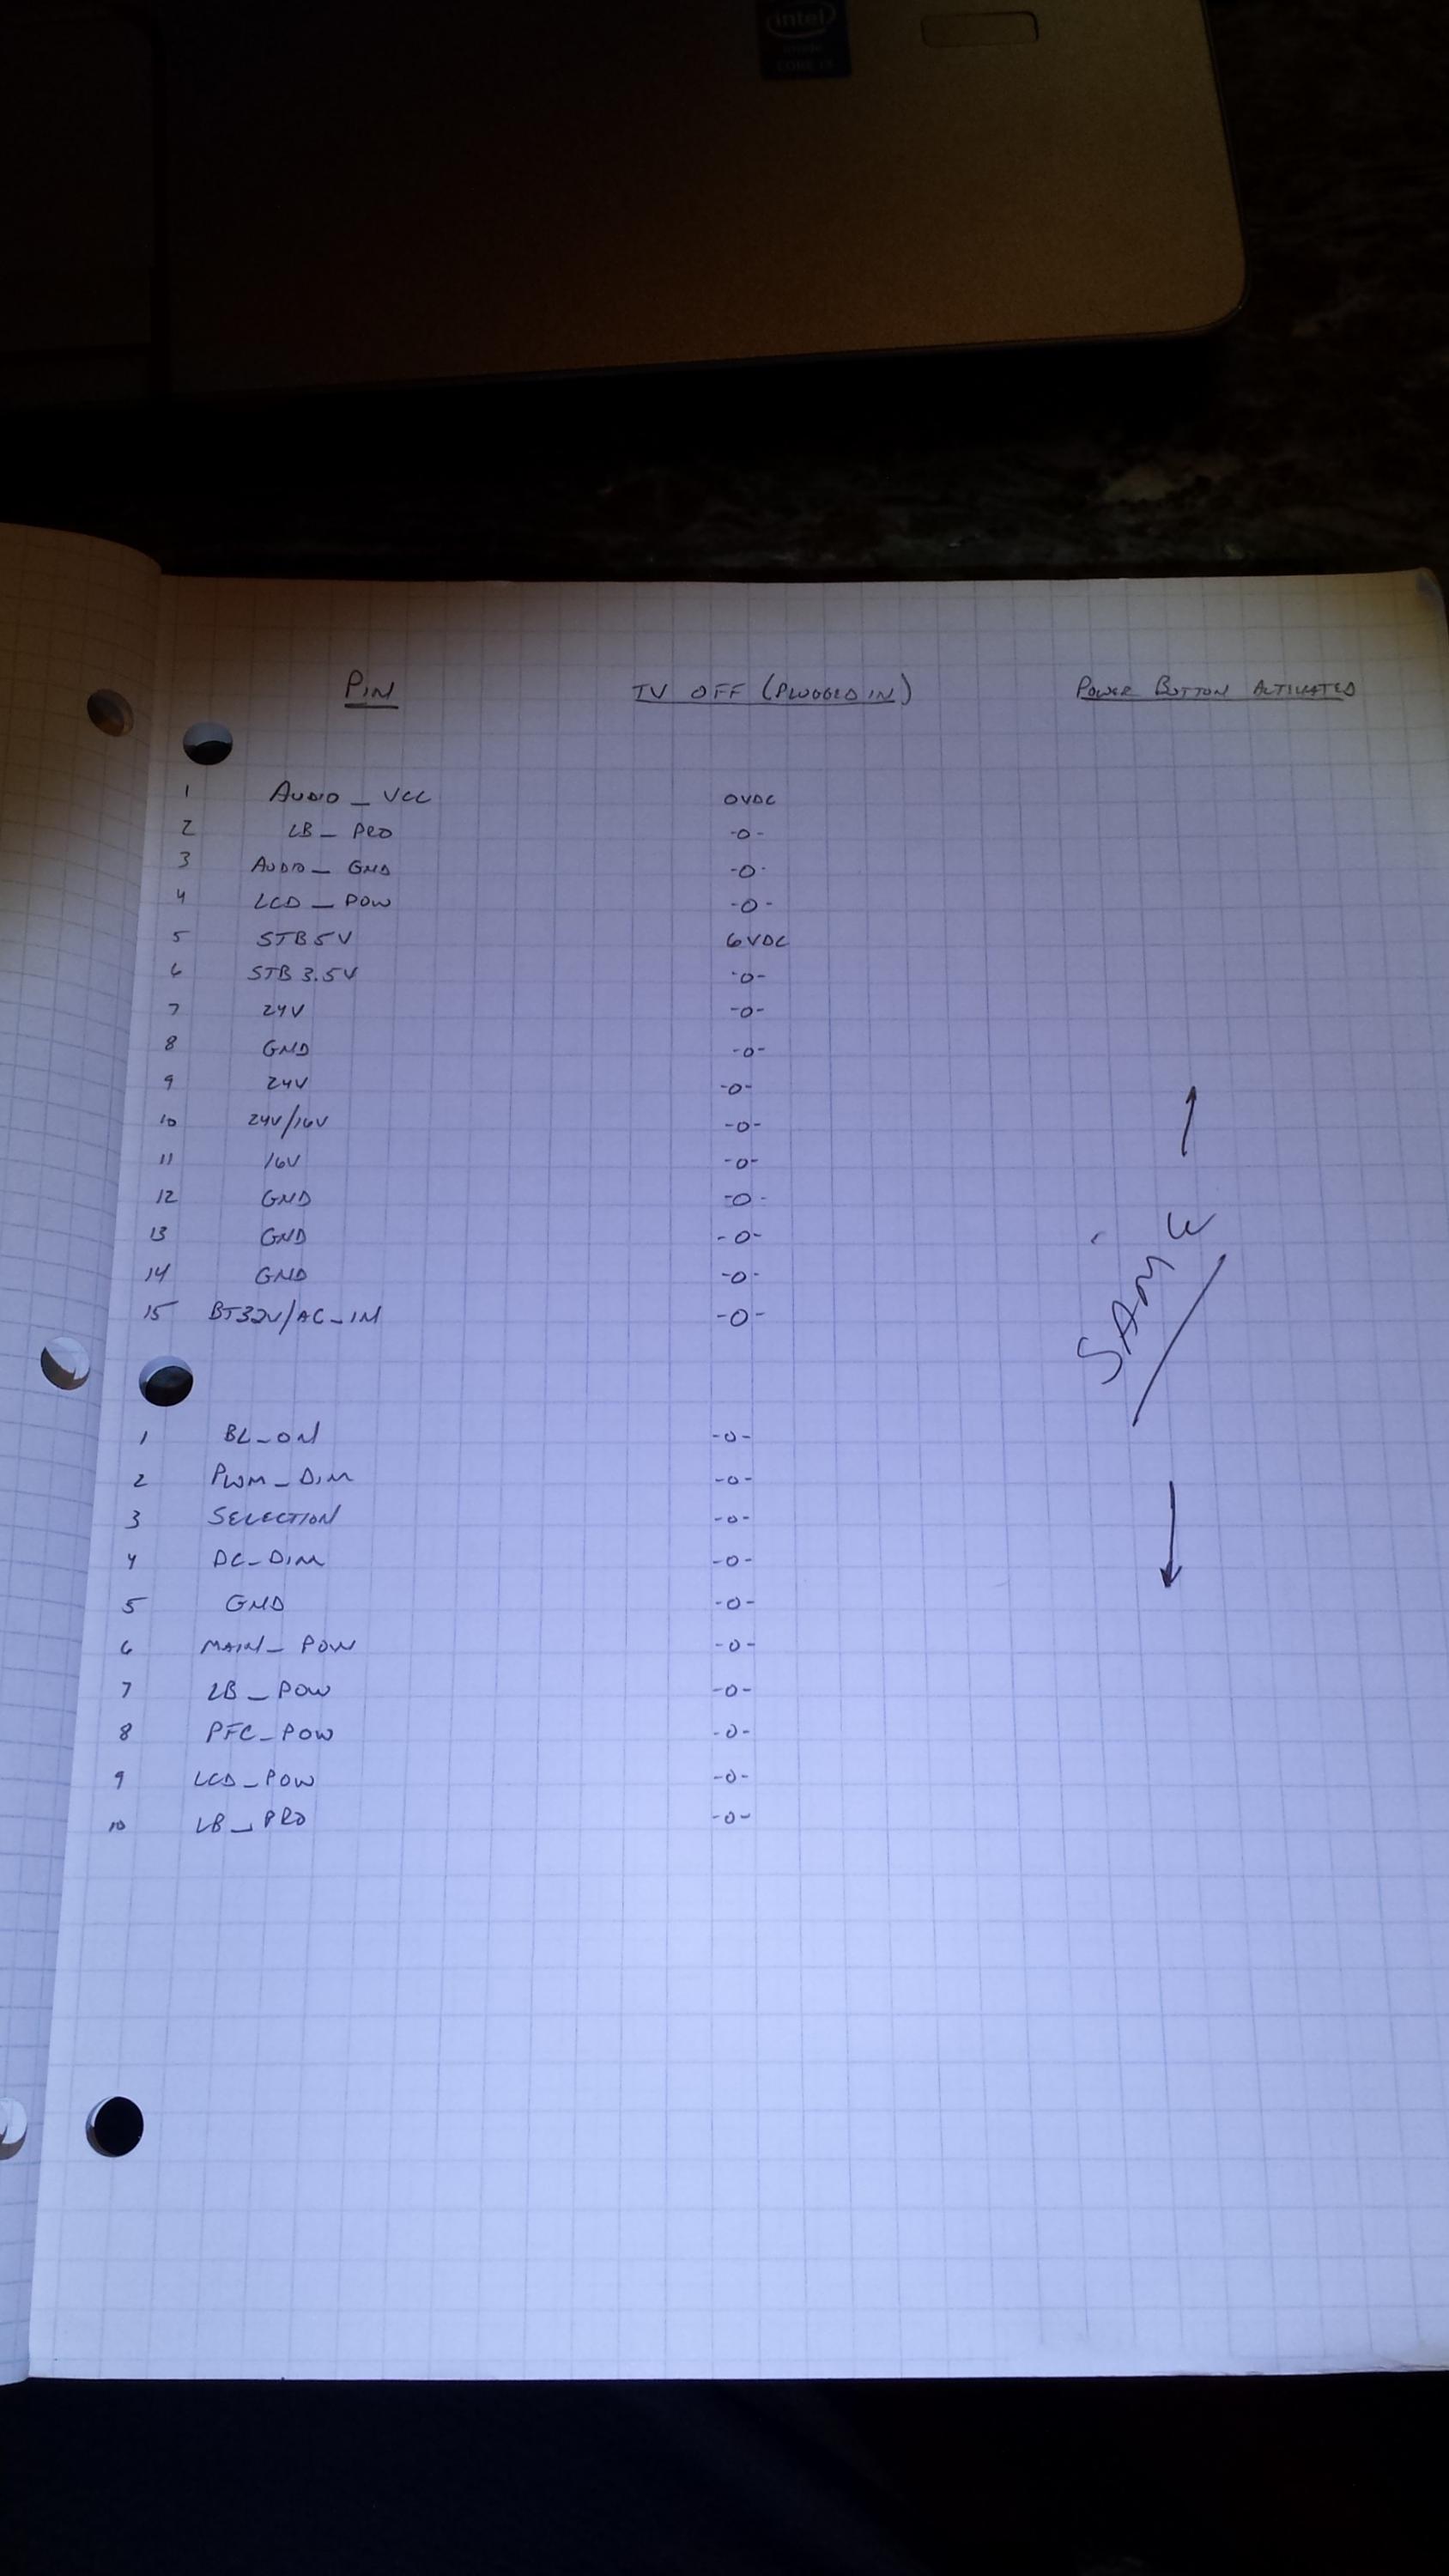 intel
inside
CORE i5
PIN TV OFF (PLUGGED IN) POWER BUTTON ACTIVATED
1 AUDIO_VCC 0VDC
2 LB_PRO -0-
3 AUDIO_GND -0-
4 LCD_POW -0-
5 STB5V 6VDC
6 STB 3.5V -0-
7 24V -0-
8 GND -0-
9 24V -0-
10 24V/16V -0-
11 16V -0-
12 GND -0-
13 GND -0-
14 GND -0-
15 BT32V/AC_IN -0-
SAME
1 BL_ON -0-
2 PWM_DIM -0-
3 SELECTION -0-
4 DC_DIM -0-
5 GND -0-
6 MAIN_POW -0-
7 LB_POW -0-
8 PFC_POW -0-
9 LCD_POW -0-
10 LB_PRO -0-